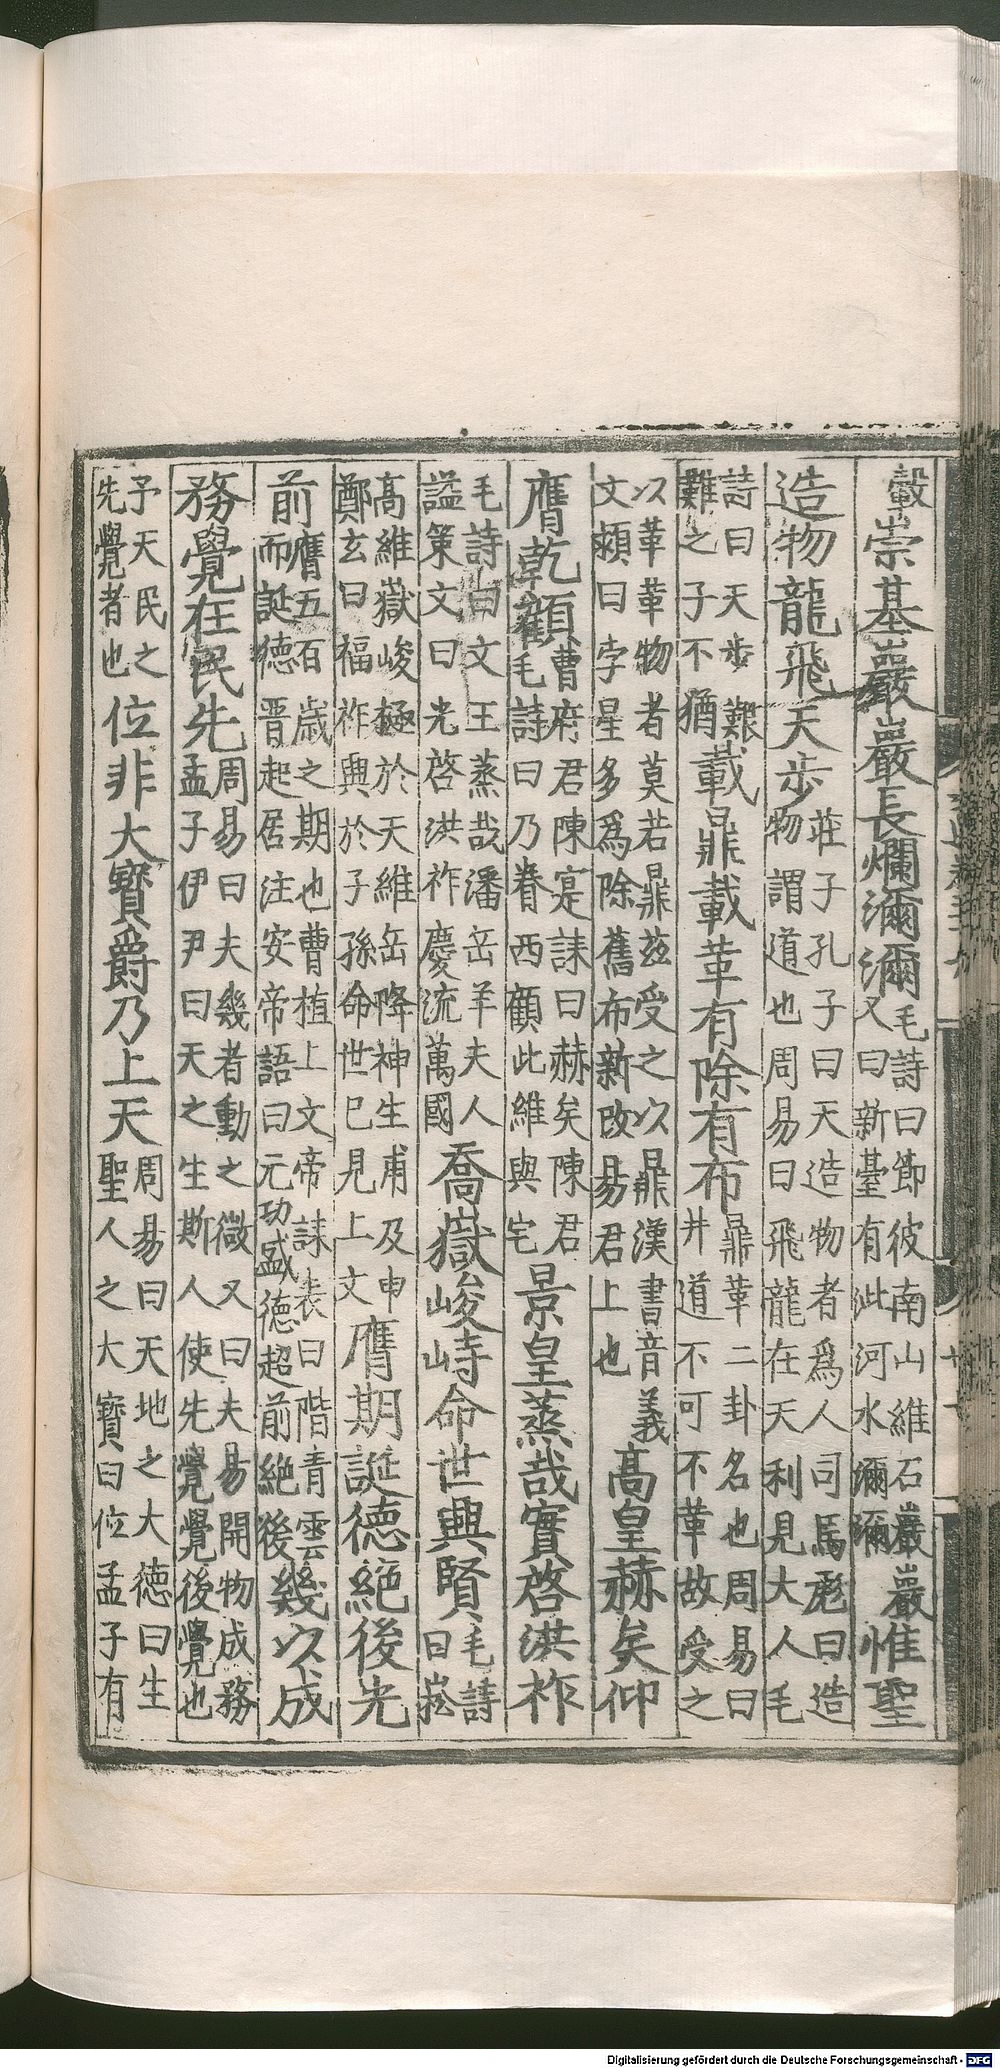 轂崇基巖巖長爛瀰瀰毛詩曰節彼南山維石巖巖又曰新臺有泚河水瀰瀰惟聖
造物龍飛天步莊子孔子曰天造物者爲人司馬彪曰造物謂道也周易曰飛龍在天利見大人毛
詩曰天步艱難之子不猶載鼎載革有除有布鼎革二卦名也周易曰井道不可不革故受之
以革革物者莫若鼎兹受之以鼎漢書音義文潁曰孛星多爲除舊布新改易君上也高皇赫矣仰
膺乾顧曹府君陳寔誄曰赫矣陳君毛詩曰乃眷西顧此維與宅景皇蒸哉實啓洪祚
毛詩曰文王蒸哉潘岳羊夫人謚策文曰光啓洪祚慶流萬國喬嶽峻峙命世興賢毛詩曰崧
高維嶽峻極於天維岳降神生甫及申鄭玄曰福祚興於子孫命世已見上文膺期誕德絕後光
前膺五百歲之期也曹植上文帝誄表曰階青雲而誕德晉起居注安帝語曰元功盛德超前絕後幾以成
務覺在民先周易曰夫幾者動之微又曰夫易開物成務孟子伊尹曰天之生斯人使先覺覺後覺也
予天民之先覺者也位非大寶爵乃上天周易曰天地之大德曰生聖人之大寶曰位孟子有
Digitalisierung gefördert durch die Deutsche Forschungsgemeinschaft - DFG